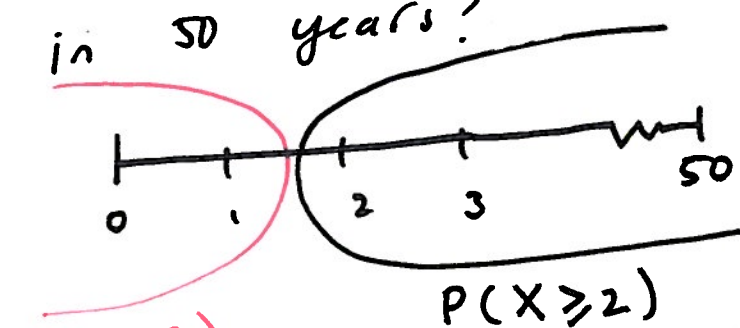 in 50 years?
0 1 2 3 50
P(X⩾2)